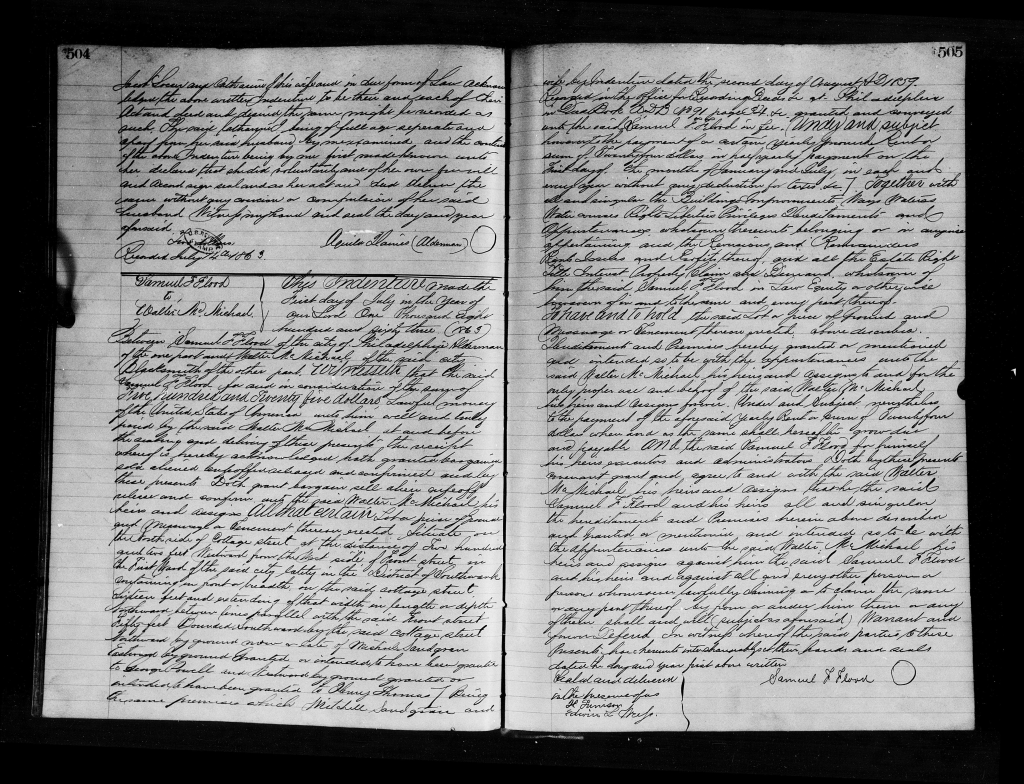 504
Jacob Loser and Catharine his wife and in due form of Law acknow
ledged the above written Indenture to be their and each of their
Act and Deed and desired the same might be recorded as
such. She said Catharine being of full age separate and
apart from her said husband by me examined and the contents
of the above Indenture being by me first made known unto
her declared that she did voluntarily and of her own free will
and accord sign seal and as her act and Deed deliver the
same without any coercion or compulsion of her said
husband Witness my hand and seal the day and year
aforesaid
Aquila Haines (Alderman)
Recorded July 14th 1863.
Samuel F Flood
to
Walter Mc Michael
This Indenture made the
First day of July in the Year of
our Lord One Thousand Eight
hundred and sixty three (1863)
Between Samuel F Flood of the city of Philadelphia Alderman
of the one part and Walter Mc Michael of the said city
Blacksmith of the other part Witnesseth that the said
Samuel F Flood for and in consideration of the sum of
Five hundred and twenty five dollars Lawful money
of the United States of America unto him well and truly
paid by the said Walter Mc Michael at and before
the sealing and delivery of these presents the receipt
whereof is hereby acknowledged hath granted bargained
sold aliened enfeoffed released and confirmed and by
these presents Doth grant bargain sell alien enfeoff
release and confirm unto the said Walter Mc Michael his
heirs and assigns All that certain Lot or piece of ground
and Messuage or Tenement thereon erected Situate on
the North side of Cottage street at the distance of Two hundred
and two feet Westward from the West side of Front street in
the First Ward of the said city lately in the District of Southwark
containing in front or breadth on the said cottage street
fifteen feet and extending of that width in length or depth
Northward between lines parallel with the said Front street
fifty feet Bounded Southward by the said Cottage street
Northward by ground now or late of Michell Sandgran
Eastward by ground Granted or intended to have been granted
to George and Westward by ground granted or
intended to have been granted to Henry Thomas / Being
the same premises which Mitchill Sandgran and
505
wife by Indenture dated the second day of August AD 1859
Recorded in the office for Recording Deeds &c at Philadelphia
in Deed Book page &c granted and conveyed
unto the said Samuel F Flood in fee. (Under and subject
however to the payment of a certain yearly Ground Rent or
sum of Twenty four dollars in half yearly payments on the
First day of the months of January and July in each and
every year without any deduction for taxes &c) Together with
all and singular the Buildings Improvements Ways Waters
Water courses Rights Liberties Privileges Hereditaments and
Appurtenances whatsoever thereunto belonging or in any wise
appertaining and the Reversions and Remainders
Rents Issues and Profits thereof and all the Estate Right
Title Interest Property Claim and Demand whatsoever of
him the said Samuel F Flood in Law Equity or otherwise
howsoever of in and to the same and every part thereof.
To have and to hold the said Lot or piece of ground and
Messuage or Tenement thereon erected above described
Hereditaments and Premises hereby granted or mentioned
and intended so to be with the Appurtenances unto the
said Walter Mc Michael his heirs and assigns to and for the
only proper use and behoof of the said Walter Mc Michael
his heirs and Assigns forever. Under and Subject nevertheless
to the payment of the aforesaid Yearly Rent or Sum of Twenty four
dollars when and as the same shall hereafter grow due
and payable And the said Samuel F Flood for himself
his heirs executors and administrators Doth by these presents
covenant grant and agree to and with the said Walter
Mc Michael his heirs and Assigns that he the said
Samuel F Flood and his heirs all and singular
the hereditaments and Premises herein above described
and granted or mentioned and intended so to be with
the appurtenances unto the said Walter Mc Michael his
heirs and assigns against him the said Samuel F Flood
and his heirs and against all and every other person or
persons whomsoever lawfully claiming or to claim the same
or any part thereof by from or under him them or any
of them shall and will (subject as aforesaid) Warrant and
forever Defend. In witness whereof the said parties to these
Presents have hereunto interchangeably set their hands and seals
dated the day and year first above written
Sealed and delivered
in the presence of us
H. Furnison
Samuel F Flood